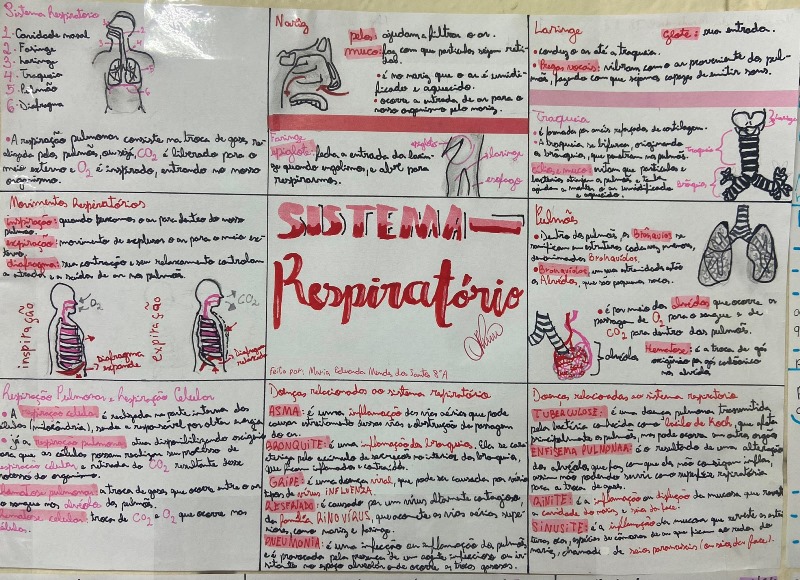 Sistema Respiratório
1. Cavidade nasal
2. Faringe
3. Laringe
4. Traqueia
5. Pulmão
6. Diafragma
• A respiração pulmonar consiste na troca de gases, re-
alizada pelos pulmões, ou seja, CO2 é liberado para o
meio externo e O2 é inspirado, entrando no nosso
organismo.
Nariz
pelos: ajudam a filtrar o ar.
muco: faz com que partículas sejam reti-
das.
• é no nariz que o ar é umidi-
ficado e aquecido.
• ocorre a entrada de ar para o
nosso organismo pelo nariz.
Faringe
epiglote: fecha a entrada da larin-
ge quando engolimos, e abre para
respirarmos.
epiglote
laringe
esôfago
Laringe
Glote: sua entrada.
• conduz o ar até a traqueia.
• Pregas vocais: vibram com o ar proveniente dos pul-
mões, fazendo com que sejamos capazes de emitir sons.
Traqueia
• é formada por anéis reforçados de cartilagem.
• A traqueia se bifurca, originando
os brônquios, que penetram nos pulmões.
Cílios e muco: evitam que partículas e
bactérias atinjam os pulmões e
ajudam a manter o ar umidificado e
aquecido.
laringe
Traqueia
Brônquios
Movimentos Respiratórios
inspiração: quando puxamos o ar para dentro do nosso
pulmão.
expiração: movimento de expulsar o ar para o meio ex-
terno.
diafragma: sua contração e seu relaxamento controlam
a entrada e a saída de ar nos pulmões.
inspiração
O2
Diafragma
expande
expiração
CO2
Diafragma
SISTEMA
Respiratório
Feito por: Maria Eduarda Mendes dos Santos 8°A
Pulmões
• Dentro dos pulmões, os Brônquios se
ramificam em estruturas cada vez menores,
denominadas Bronquíolos.
• Bronquíolos, em suas extremidades estão
os Alvéolos, que são pequenas bolsas.
• é por meio dos alvéolos que ocorre a
passagem de O2 para o sangue e de
CO2 para dentro dos pulmões.
alvéolos
Hematose: é a troca de gás
oxigênio por gás carbônico
no alvéolo.
Respiração Pulmonar e Respiração Celular
• A respiração celular é realizada na parte interna das
células (mitocôndria), sendo a responsável por obter energia.
• já a respiração pulmonar atua disponibilizando oxigênio
para que as células possam realizar seu processo de
respiração celular, a retirada do CO2 resultante desse
processo do organismo.
Hematose pulmonar: a troca de gases que ocorre entre o ar
e o sangue nos alvéolos dos pulmões.
Hematose celular: troca de CO2 e O2 que ocorre nas
células.
Doenças relacionados ao sistema respiratório
ASMA: é uma inflamação das vias aéreas que pode
causar estreitamento dessas vias e obstrução da passagem
do ar.
BRONQUITE: é uma inflamação dos bronquios. Ela se carac-
teriza pelo acúmulo de secreções no interior dos bronquios,
que ficam inflamados e contraídos.
GRIPE: é uma doença viral, que pode ser causada por vários
tipos de vírus INFLUENZA.
RESFRIADO: é causado por um vírus altamente contagioso,
da família RINOVÍRUS, que acomete as vias aéreas supe-
riores, como nariz e faringe.
PNEUMONIA: é uma infecção ou inflamação dos pulmões
e é provocada pela presença de um agente infeccioso ou irri-
tante no espaço alveolar onde ocorre as trocas gasosas.
Doenças relacionadas ao sistema respiratório
TUBERCULOSE: é uma doença pulmonar transmitida
pela bactéria conhecida como bacilo de Koch, que afeta
principalmente os pulmões, mas pode ocorrer em outros orgãos
ENFISEMA PULMONAR: é o resultado de uma alteração
dos alvéolos que faz com que eles não consigam inflar,
assim não podendo servir como superfície respiratória
para a troca de gases.
RINITE: é a inflamação ou disfunção da mucosa que reveste
a cavidade do nariz e seios da face.
SINUSITE: é a inflamação das mucosas que reveste os seios
nariz, chamada de seios paranasais (ou seios da face).